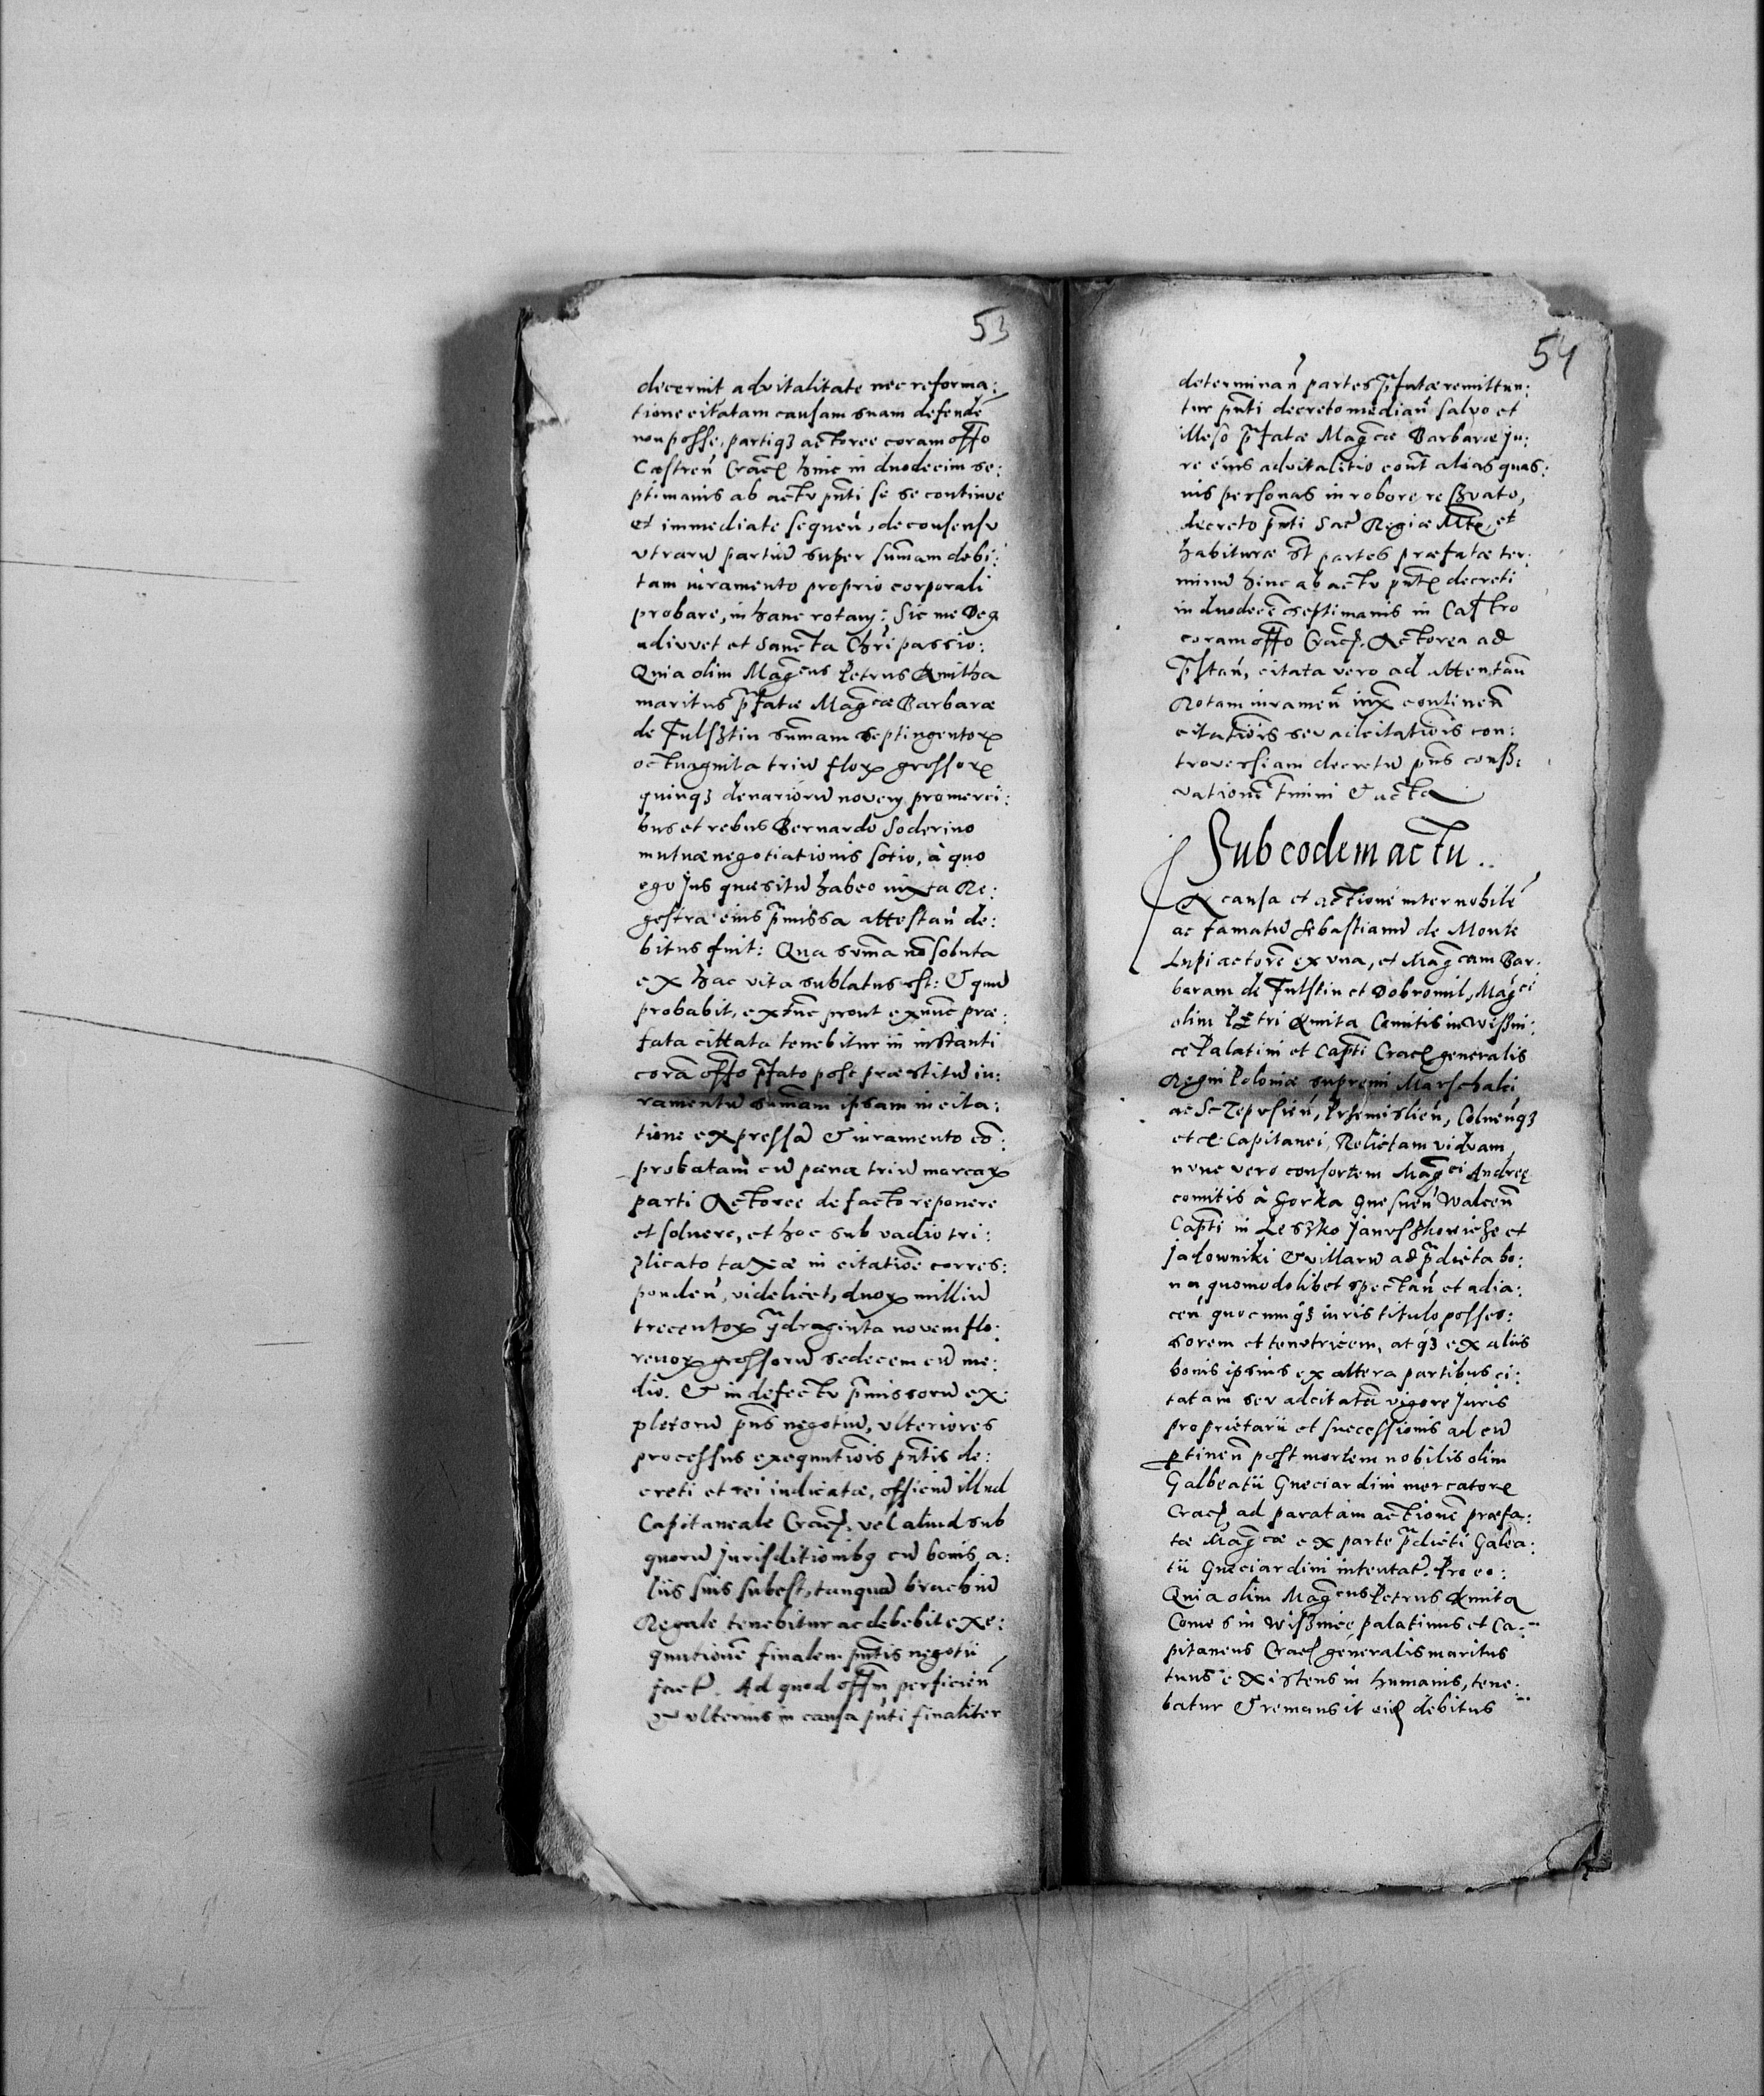 53
decernit advitalitate nec reforma:
tione citatam causam suam defendẽ
non posse, partiqȝ actoree coram offo
Castreñ Crac̃ hinc in duodecim se:
ptimanis ab actu pñti se se continue
et immediate sequeñ, de consensu
vtrarũ partiũ super sum̃am debi:
tam iuramento proprio corporali
probare, in hanc rotam: Sic me Deg
adiuvet et Sancta Chri passio:
Quia olim Mag̃cus Petrus Kmitha
maritus p̃fatæ Mag̃cæ Barbaræ
de Fulsztin sum̃am septingentoꝝ
octuaginta triũ floꝝ grossoꝝ
quinqȝ denariorũ novem pro merci:
bus et rebus Bernardo Soderino
mutuæ negotiationis sotio, à quo
ego Jus quæsitũ habeo iuxta Re:
gestra eius p̃missa attestañ de:
bitus fuit: Qua sum̃a nõ soluta
ex hac vita sublatus est: & quũ
probabit, extũc prout exnũc præ:
fata cittata tenebitur in instanti
corã offo p̃fato post præstitũ iu:
ramentũ sum̃am ipsam in cita:
tione expressã & iuramento cõ:
probatam cũ pœna triũ marcaꝝ
parti Actoree de facto reponere
et soluere, et hoc sub vadio tri:
plicato taxæ in citatiõe corres:
pondeñ, videlicet, duoꝝ milliũ
trecentoꝝ q̃draginta novem flo:
renoꝝ grossorũ sedecem cũ me:
dio. & in defectu p̃missorũ ex:
pletorũ pñs negotiũ, vlteriores
processus exequutiõis pñtis de:
creti et rei iudicatæ, officiũ illud
Capitaneale Crac̃. vel aliud sub
quorũ Jurisditionibg cũ bonis a:
liis suis subest, tanquã brachiũ
Regale tenebitur ac debebit exe:
quutionẽ finalem pñtis negotii
facẽ. Ad quod offm perficieñ
& vlterius in causa pñti finaliter
54
determinañ partes p̃fatæ remittun:
tur pñti decreto mediañ salvo et
illeso p̃fatæ Mag̃cæ Barbaræ Ju:
re eius advitalitio cont̃ alias quas:
uis personas in robore reservato,
decreto pñti Sac̃ Regiæ Mtis, et
habituræ st̃ partes præfatæ ter:
minũ hinc ab actu pñtis decreti
in duodecẽ septimanis in Castro
coram offo Crac̃. Actorea ad
p̃stañ, citata vero ad attentañ
Rotam iurameñ iuxͣ contineñ
citatiõis seu adcitatiõis con:
troversiam decretũ pñs conser:
vationẽ tmini & acta
Sub eodem actu..
Ex causa et actione inter nobilẽ
ac famatũ Sebastianũ de Monte
Lupi actorẽ ex vna, et Mag̃cam Bar:
baram de Fulstin et Dobromil, Mag̃ci
olim Petri Kmita Comitis in Wiszni:
ce Palatini et Capti Crac̃ generalis
Regni Poloniæ supremi Marschalci
ac Scepusieñ, Przemislieñ, Colneñqȝ
etc̃. Capitanei, Relictam viduam
nunc vero consortem Mag̃ci Andreę
comitis à Gorka Gnesneñ Walceñ
Capti in Leszko Januszkowicze et
Jalowniki & villarũ ad p̃dicta bo:
na, quomodolibet spectañ et adia:
ceñ quocunqȝ iuris titulo posses:
sorem et tenetricem, atqȝ ex aliis
bonis ipsius ex altera partibus ci:
tatam seu adcitatã vigore Juris
proprietarii et successionis ad eũ
ꝑtineñ post mortem nobilis olim
Galbeatii Gueciardini mercatoris
Crac̃, ad paratam actionẽ præfa:
tæ Mag̃cæ ex parte p̃dicti Galea:
tii Gueciardini intentat̃. Pro eo:
Quia olim Mag̃cus Petrus Kmita
Comes in Wisznice palatinus et Ca:
pitaneus Crac̃ generalis maritus
tuus existens in humanis, tene:
batur & remansit eidẽ debitus